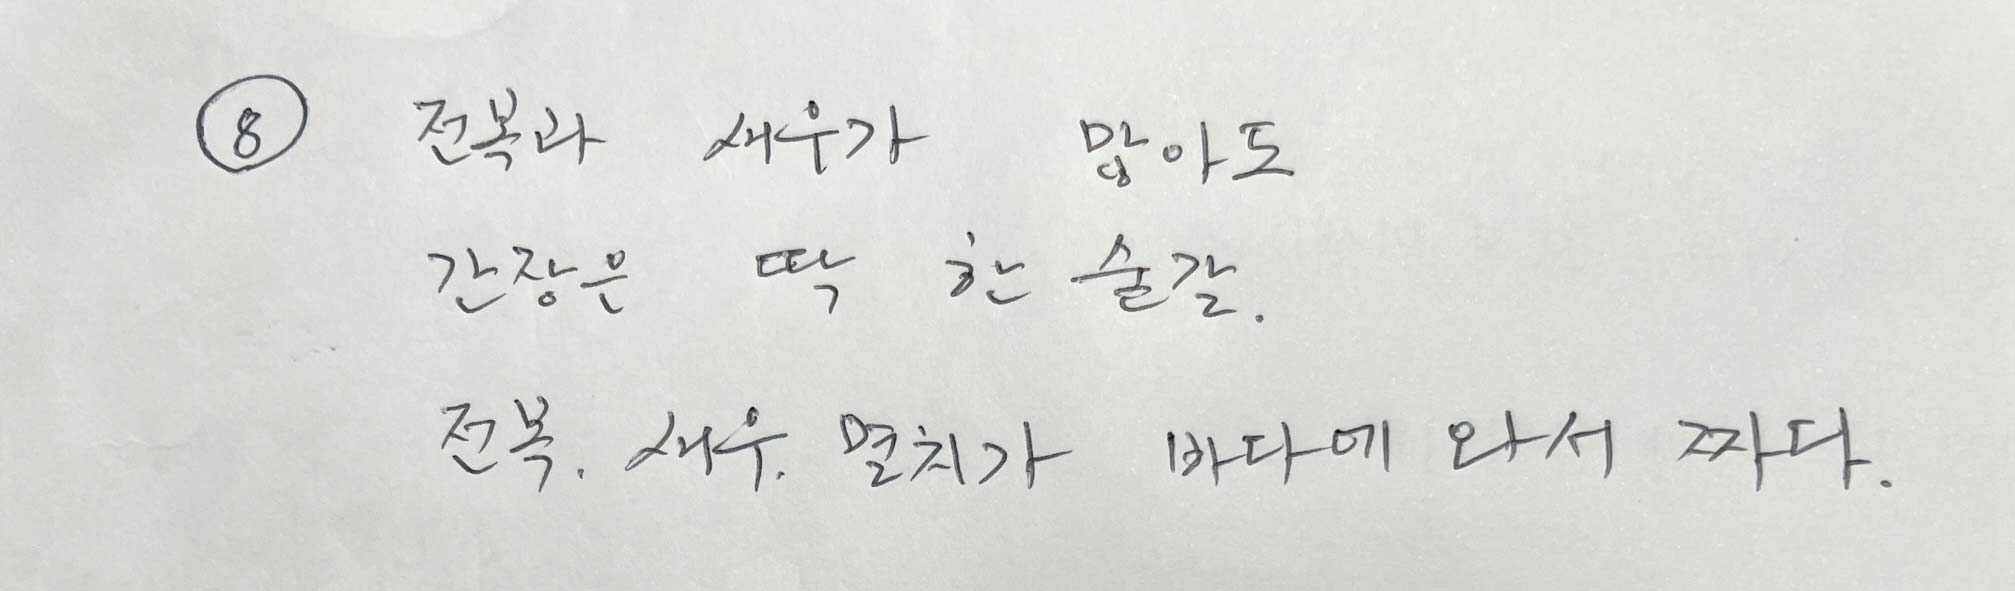 ⑧ 전복과 새우가 많아도
간장은 딱 한 술갈.
전복, 새우, 멸치가 바다에 와서 짜다.